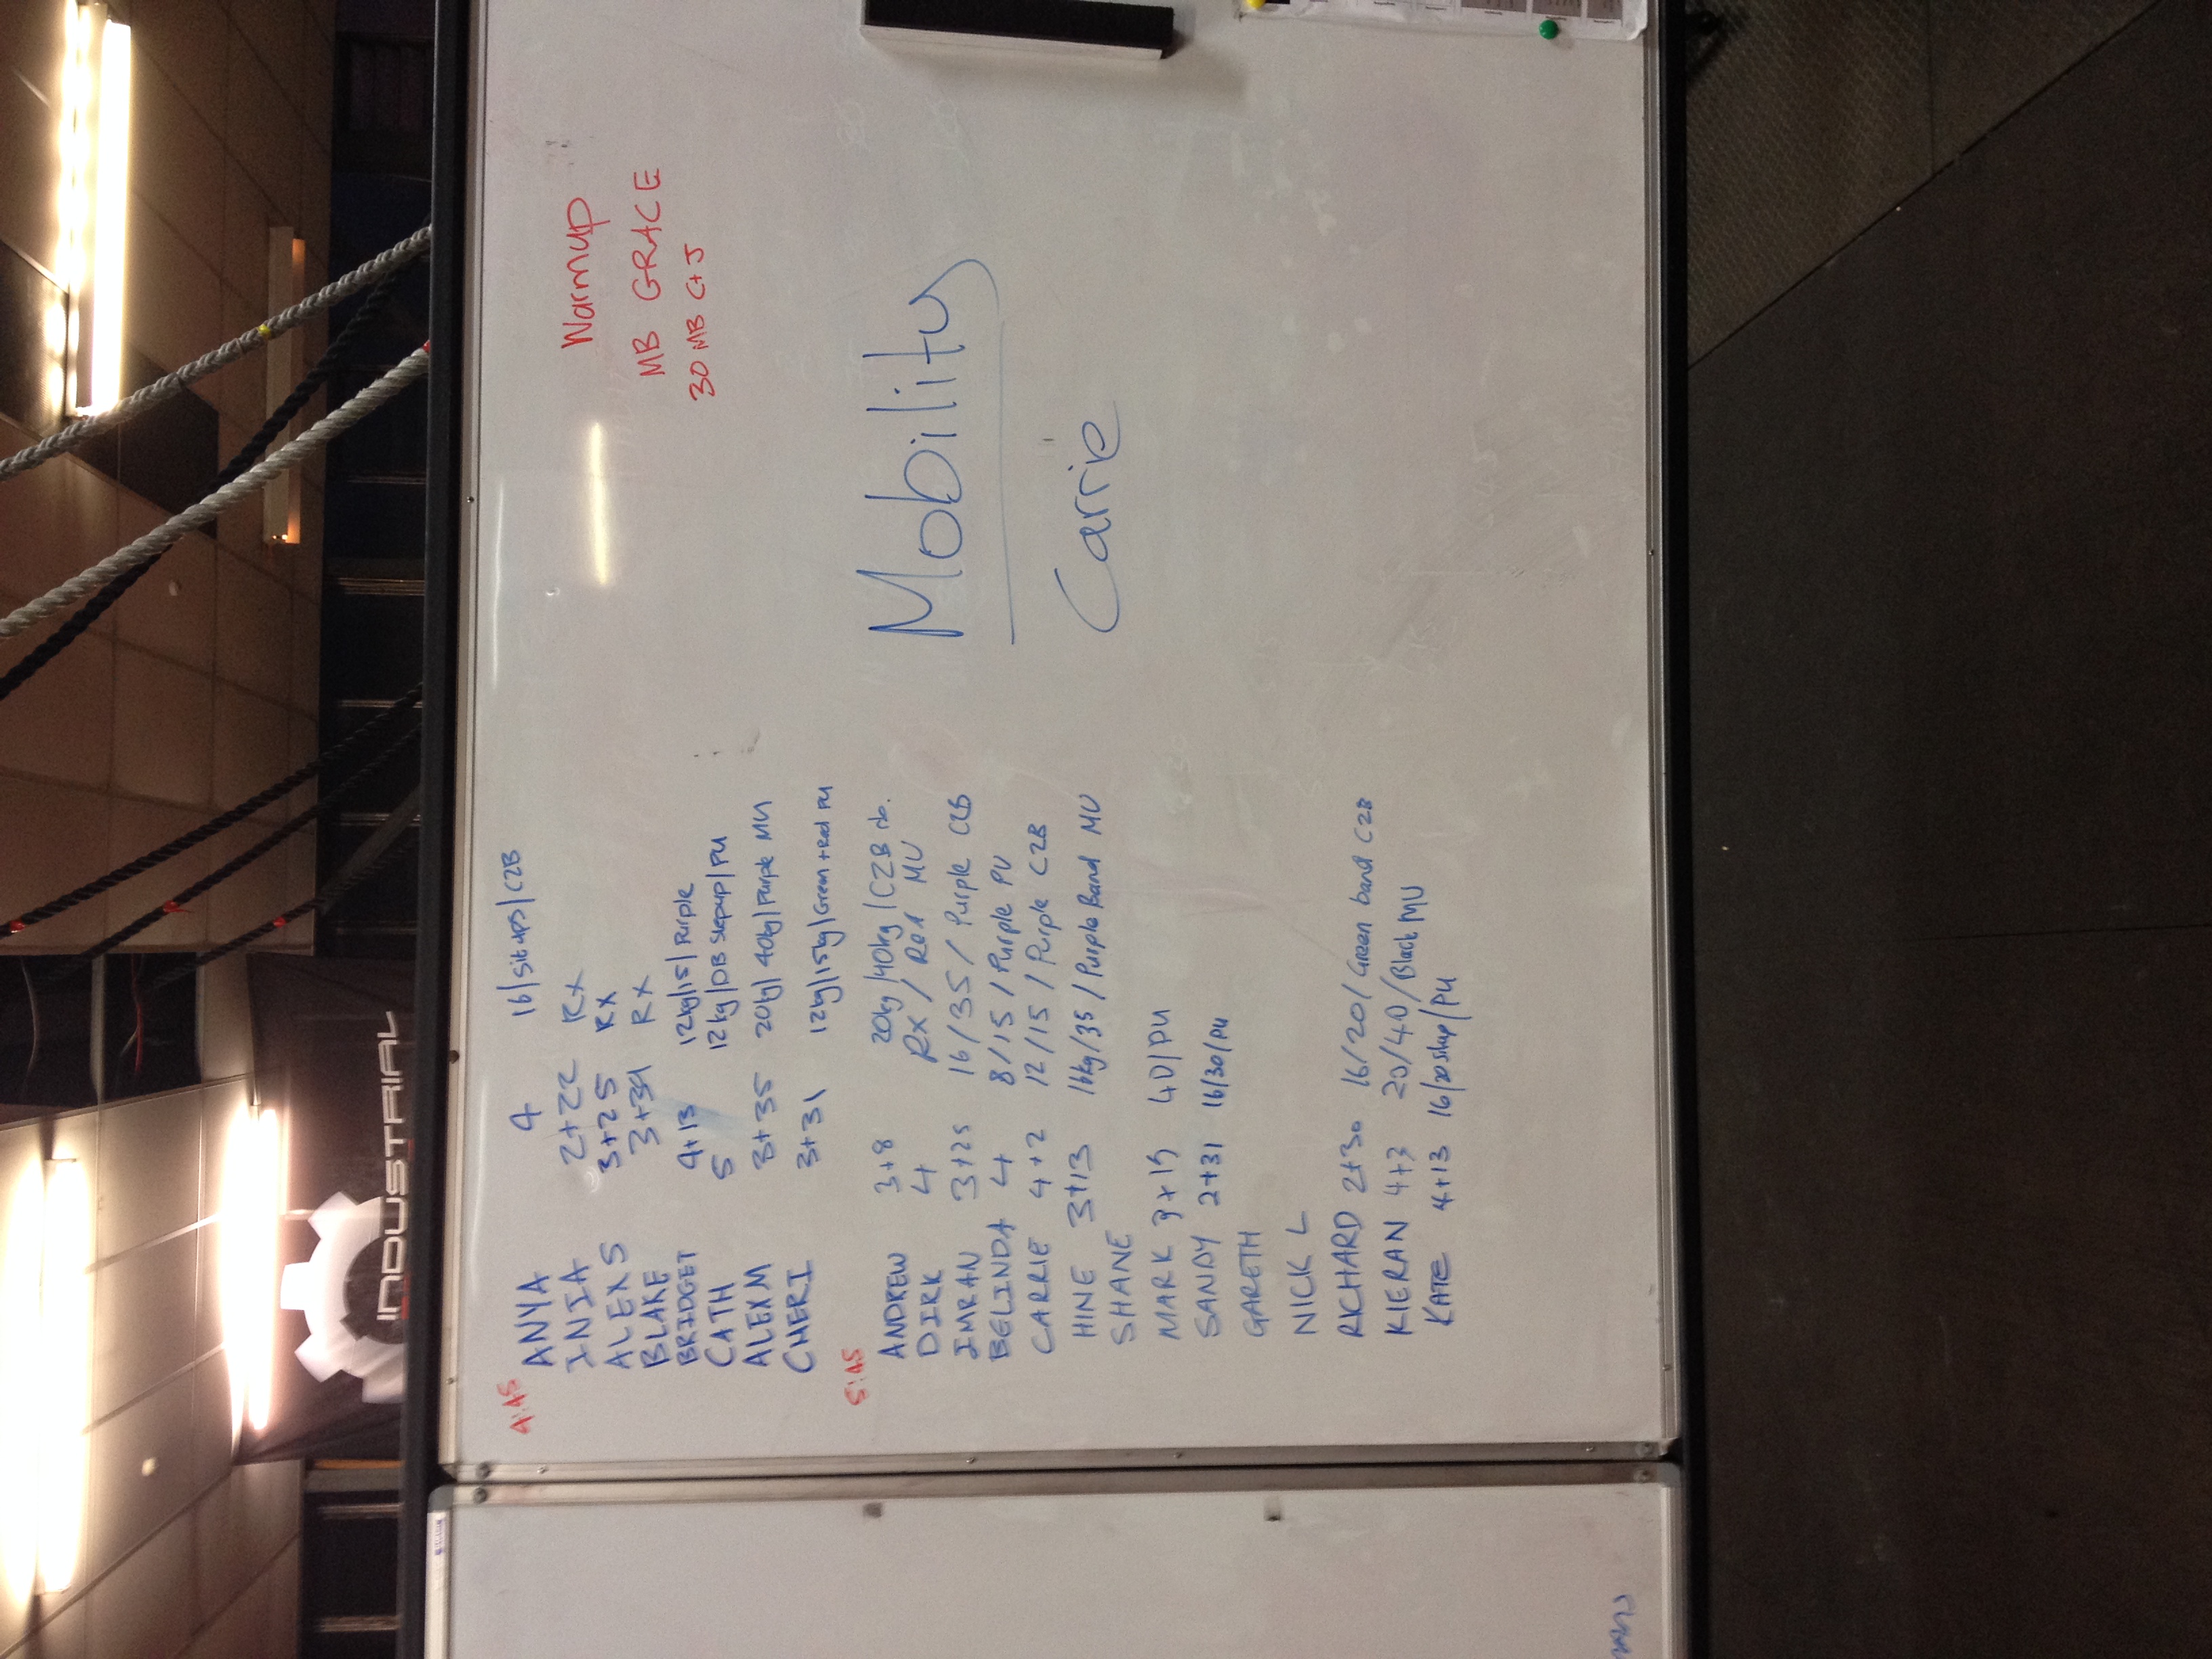 4:45
ANYA 4 16/situps/C2B
INIA 2+22 RX
ALEX S 3+25 RX
BLAKE 3+34 RX
BRIDGET 4+13 12kg/15/Purple
CATH 5 12kg/DB stepup/PU
ALEX M 3+35 20kg/40kg/Purple MU
CHERI 3+31 12kg/15kg/Green+Red PU
5:45
ANDREW 3+8 20kg/40kg/C2B
DIRK 4 RX/Red MU
IMRAN 3+25 16/35/Purple C2B
BELINDA 4 8/15/Purple PU
CARRIE 4+2 12/15/Purple C2B
HINE 3+13 16kg/35/Purple Band MU
SHANE
MARK 3+15 40/PU
SANDY 2+31 16/30/PU
GARETH
NICK L
RICHARD 2+30 16/20/Green band C2B
KIERAN 4+3 20/40/Black MU
KATE 4+13 16/20 situp/PU
Warmup
MB GRACE
30 MB C+J
Mobility
Carrie
INDUSTRIAL